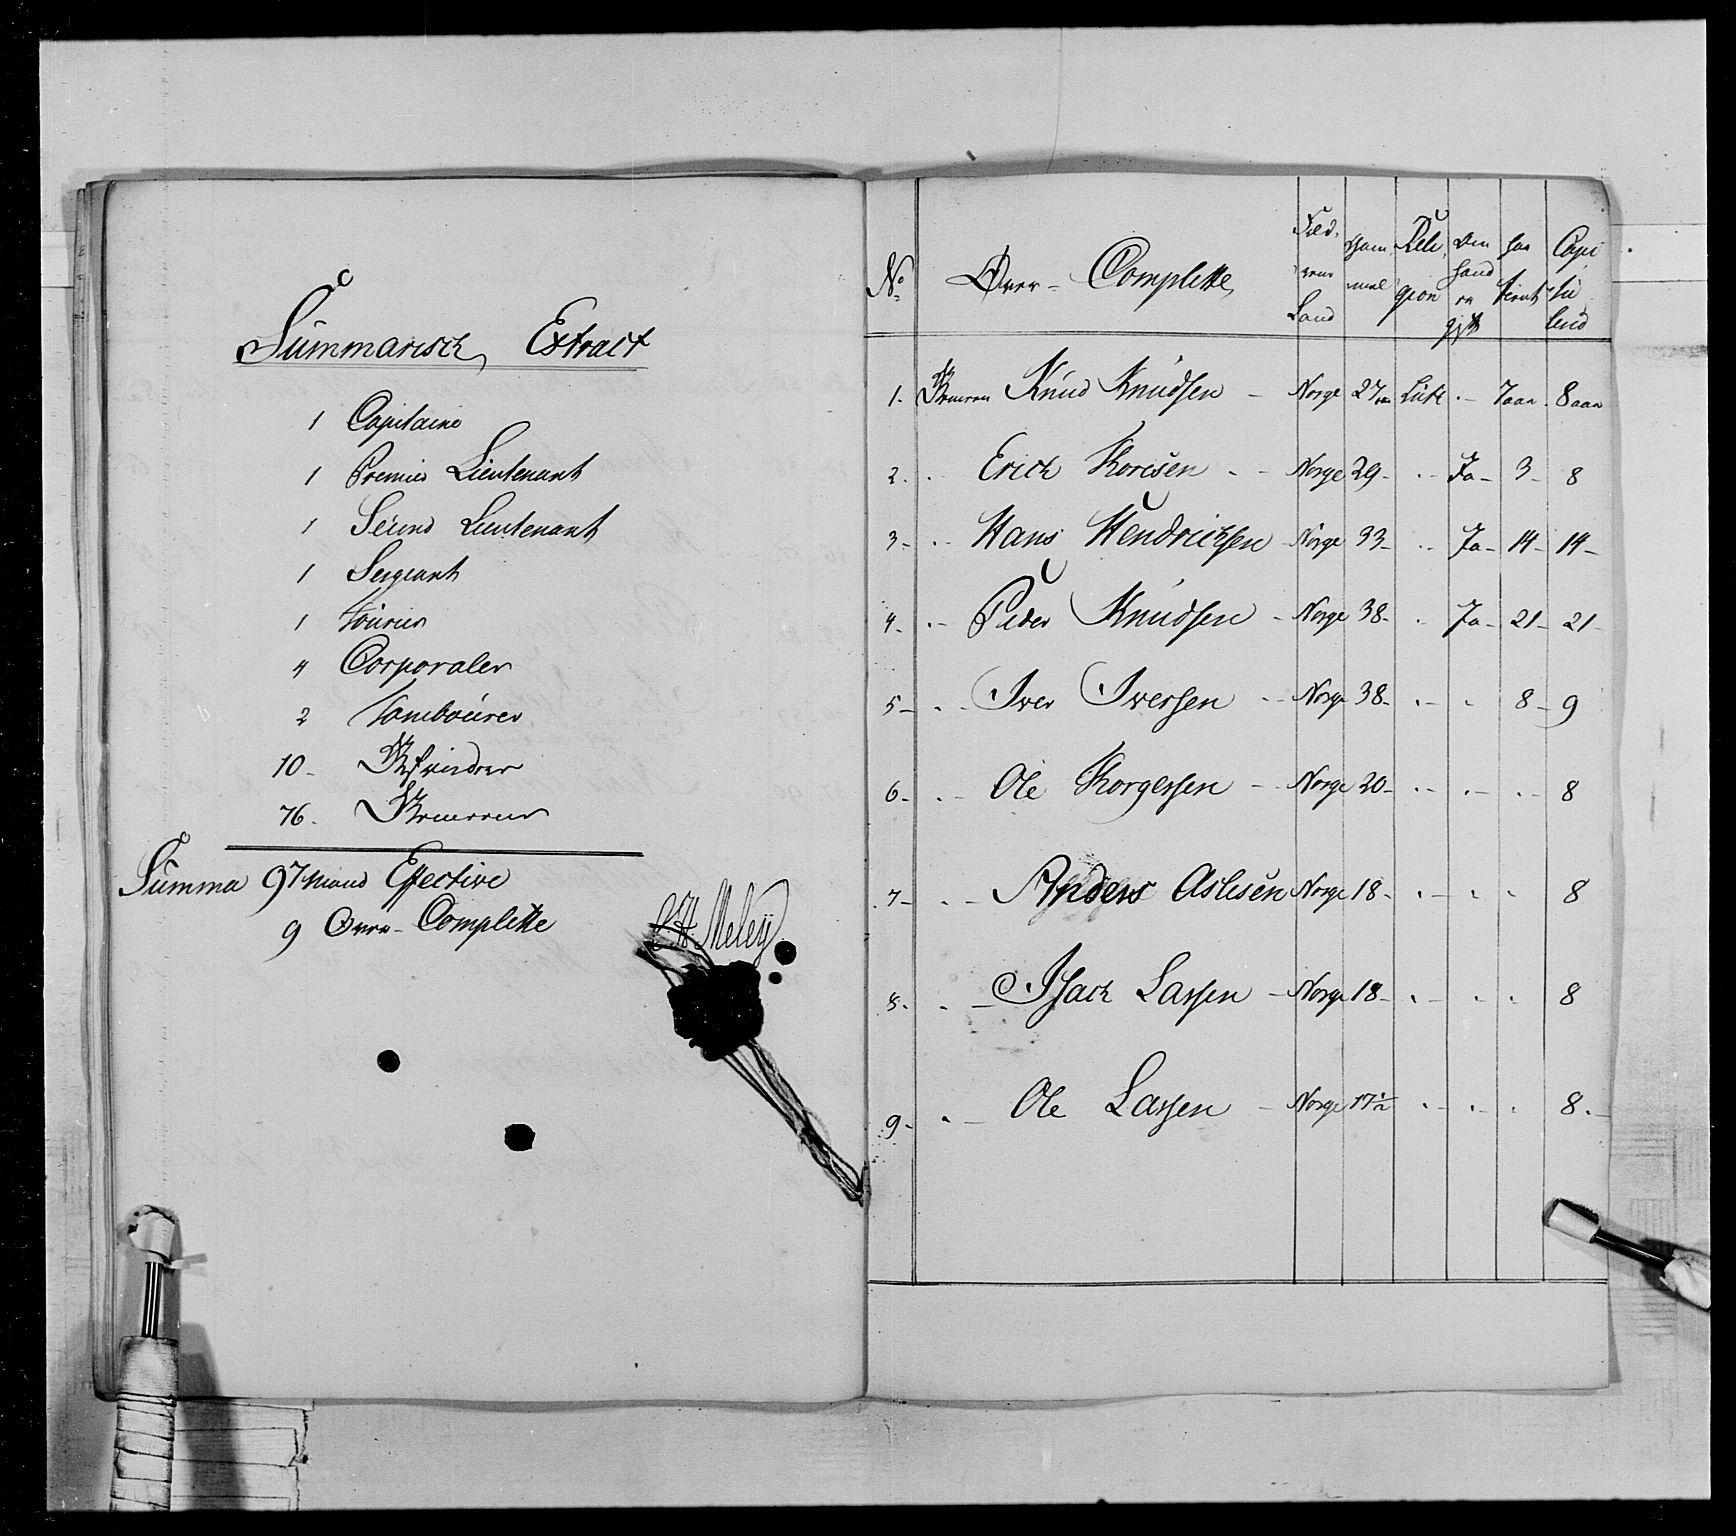 Summarisch Extract
1 Capitaine
1 Premier Lieutenant
1 Secund Lieutenant
1 Sergeant
1 Fourier
4 Corporaler
2 Tambourer
10 -
76 -
Summa 97 Mand Effective
9 Over-Complette
Meleÿ
No Over-Complette, Føde Land Gammel Religion Om hand er gift har tient Capitulend
1. Knud Knudsen - Norge 27 aar Luth - 7 aar 8 aar
2. - Erich Toresen - - Norge 29 - - Ja - 3 - 8
3 - - Hans Hendrichsen - Norge 33 - - Ja - 14 - 14 -
4 - - Peder Knudsen - Norge 38 - - Ja - 21 - 21 -
5 - - Iver Iversen - - Norge 38 - - - 8 - 9
6 - - Ole Torgersen - Norge 20 - - - - 8
7 - - Anders Aslesen Norge 18 - - - - 8
8. - Isach Larsen - Norge 18 - - - - 8
9 - - Ole Larsen - Norge 17 1/2 - - - 8. -